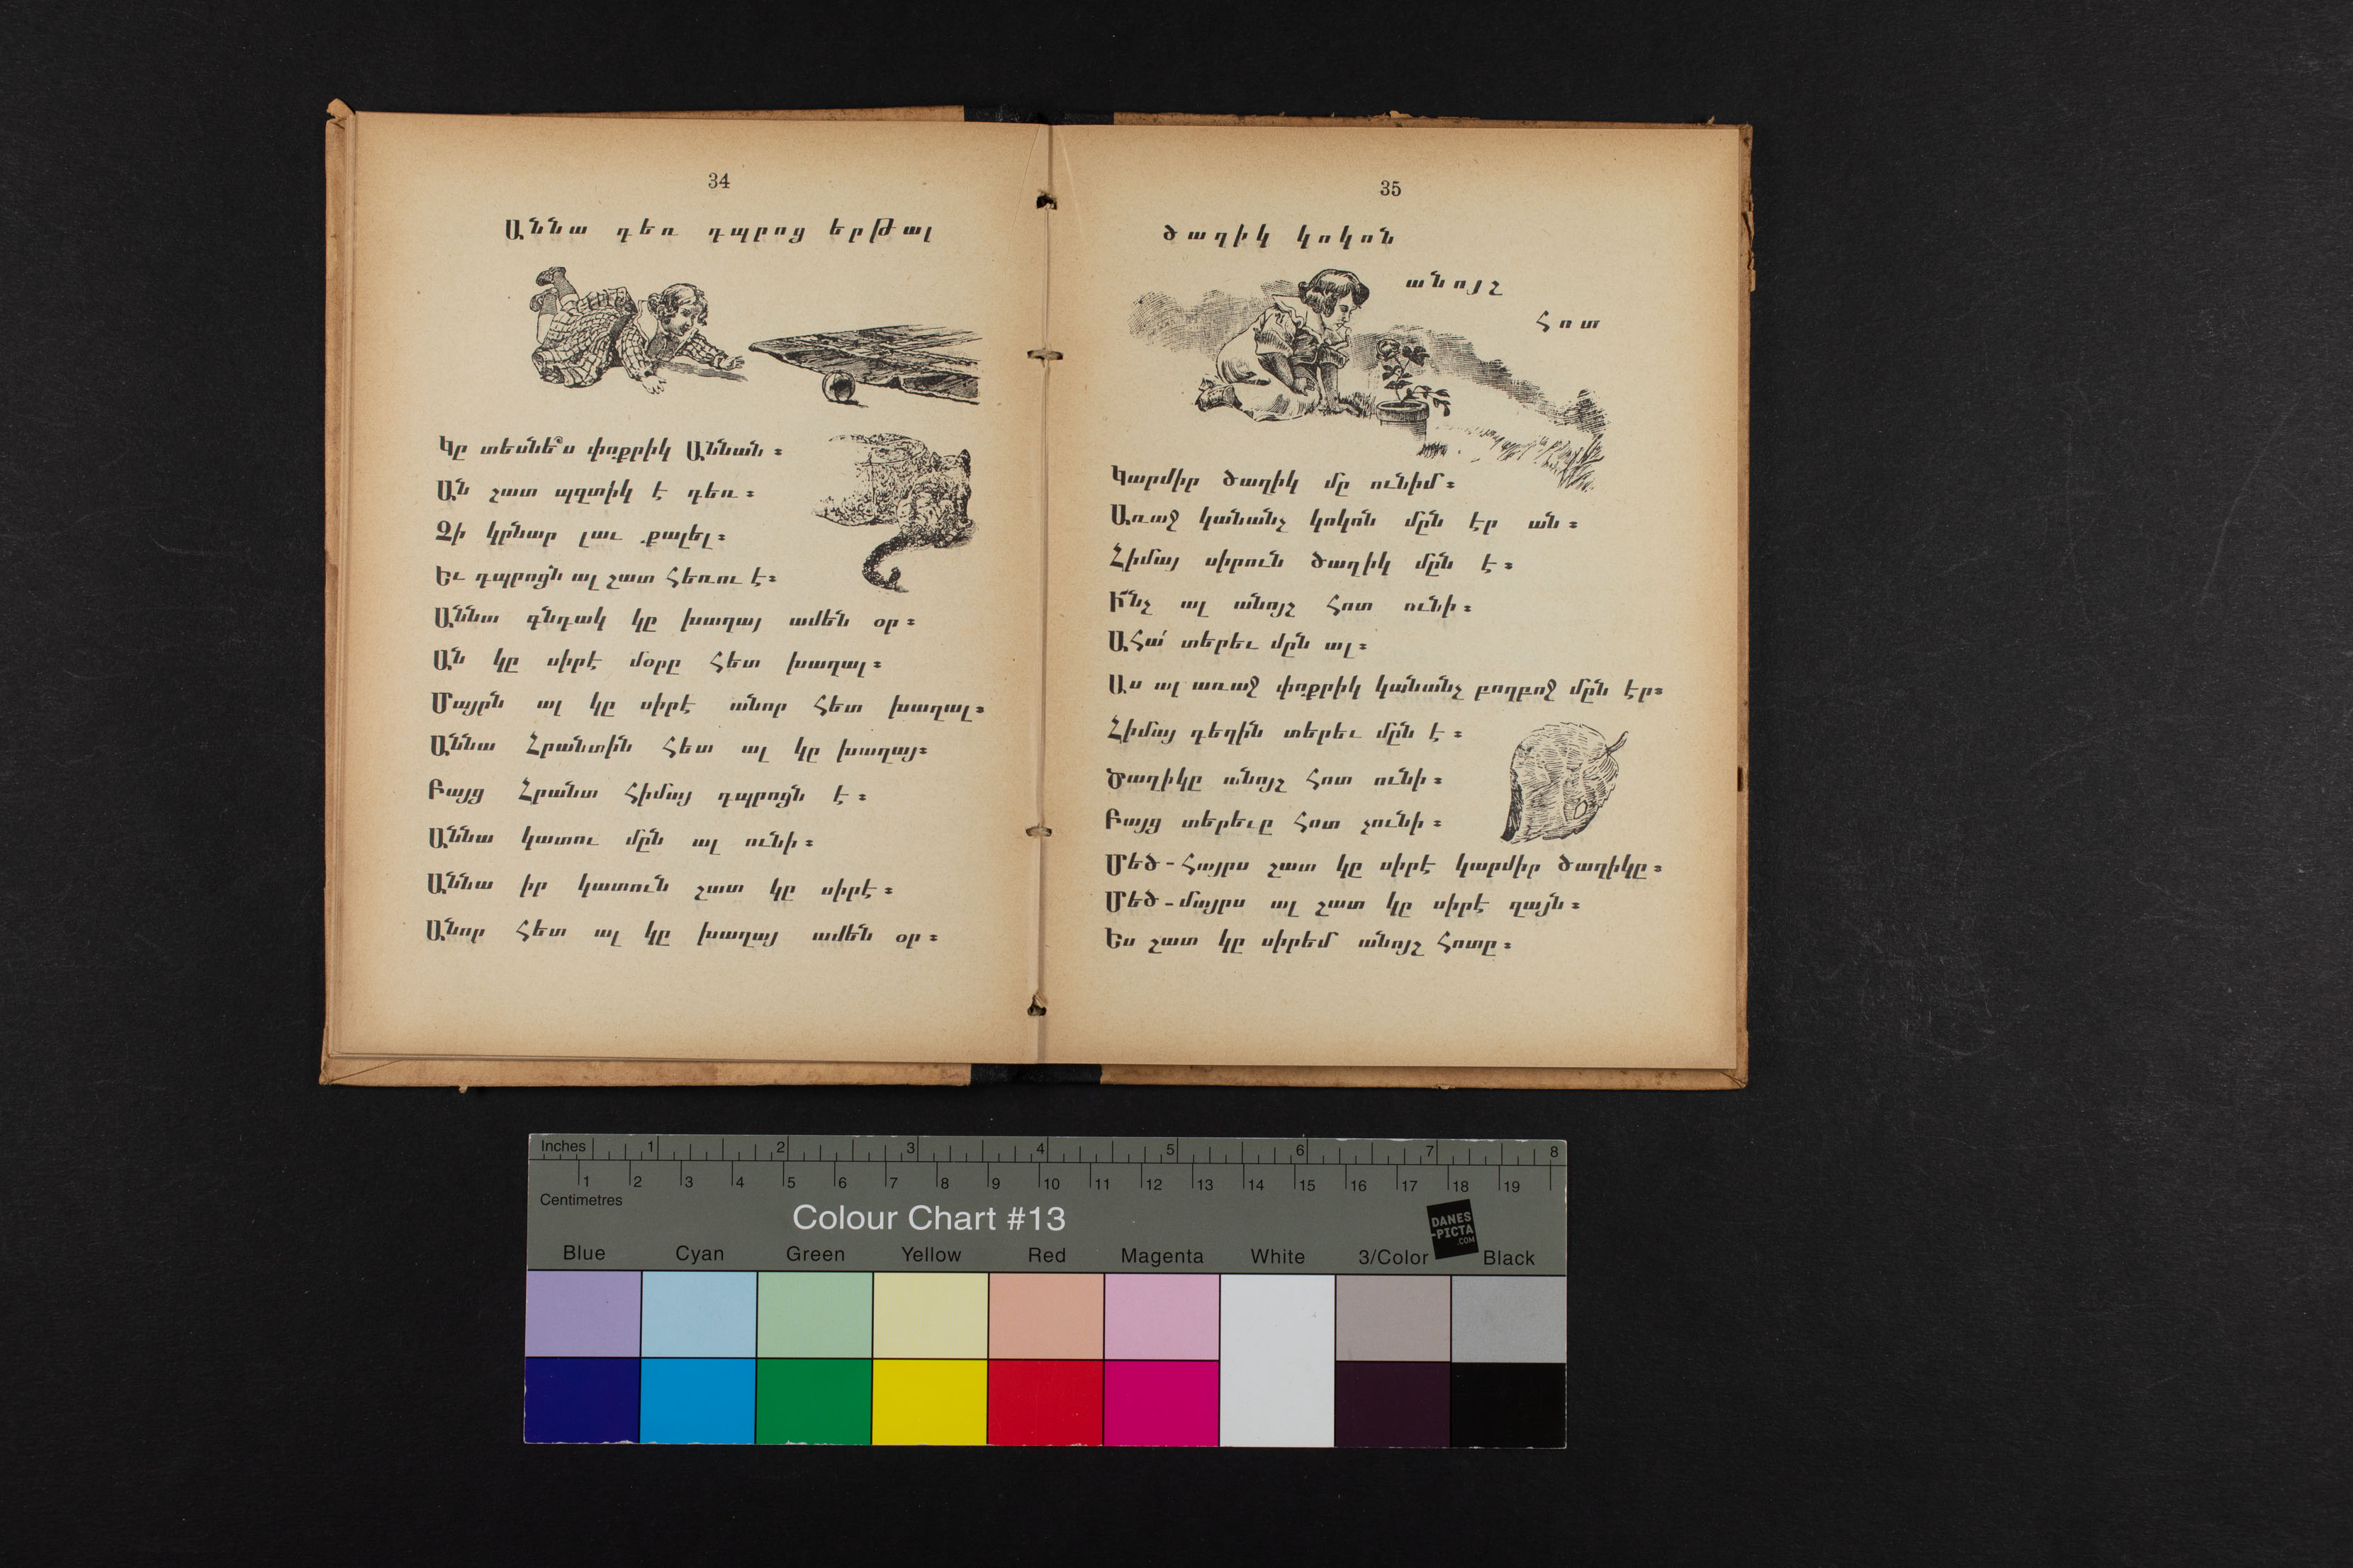 34
Աննա դեռ դպրոց երթալ
Կը տեսնե՞ս փոքրիկ Աննան։
Ան շատ պզտիկ է դեռ։
Չի կրնար լաւ քալել։
Եւ դպրոցն ալ շատ հեռու է։
Աննա գնդակ կը խաղայ ամեն օր։
Ան կը սիրէ մօրը հետ խաղալ։
Մայրն ալ կը սիրէ անոր հետ խաղալ։
Աննա Հրանտին հետ ալ կը խաղայ։
Բայց Հրանտ հիմայ դպրոցն է։
Աննա կատու մըն ալ ունի։
Աննա իր կատուն շատ կը սիրէ։
Անոր հետ ալ կը խաղայ ամեն օր։
35
ծաղիկ կոկոն
անոյշ
հոտ
Կարմիր ծաղիկ մը ունիմ։
Առաջ կանանչ կոկոն մըն էր ան։
Հիմայ սիրուն ծաղիկ մըն է։
Ի՜նչ ալ անոյշ հոտ ունի։
Ահա՛ տերեւ մըն ալ։
Աս ալ առաջ փոքրիկ կանանչ բողբոջ մըն էր։
Հիմայ դեղին տերեւ մըն է։
Ծաղիկը անոյշ հոտ ունի։
Բայց տերեւը հոտ չունի։
Մեծ-հայրս շատ կը սիրէ կարմիր ծաղիկը։
Մեծ-մայրս ալ շատ կը սիրէ զայն։
Ես շատ կը սիրեմ անոյշ հոտը։
Inches 1 2 3 4 5 6 7 8
1 2 3 4 5 6 7 8 9 10 11 12 13 14 15 16 17 18 19
Centimetres
Colour Chart #13
DANES
-PICTA
.COM
Blue Cyan Green Yellow Red Magenta White 3/Color Black